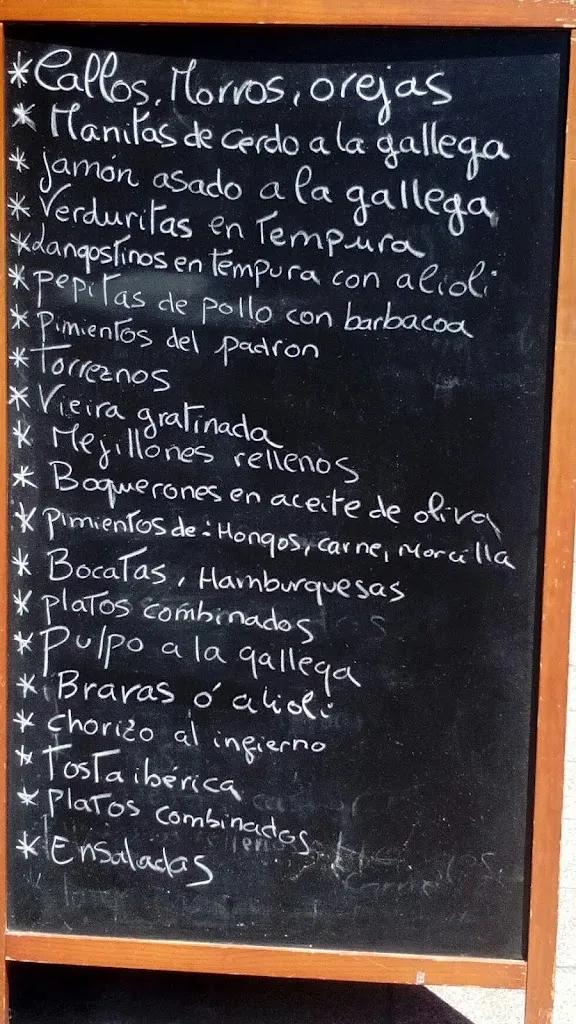 * Callos, Morros, orejas
* Manitas de cerdo a la gallega
* jamón asado a la gallega
* Verduritas en Tempura
* Langostinos en tempura con alioli
* pepitas de pollo con barbacoa
* pimientos del padron
* Torreznos
* Vieira gratinada
* Mejillones rellenos
* Boquerones en aceite de oliva
* pimientos de: Hongos, carne, Morcilla
* Bocatas, Hamburguesas
* platos combinados
* Pulpo a la gallega
* Bravas ó alioli
* chorizo al infierno
* Tosta ibérica
* Platos combinados
* Ensaladas